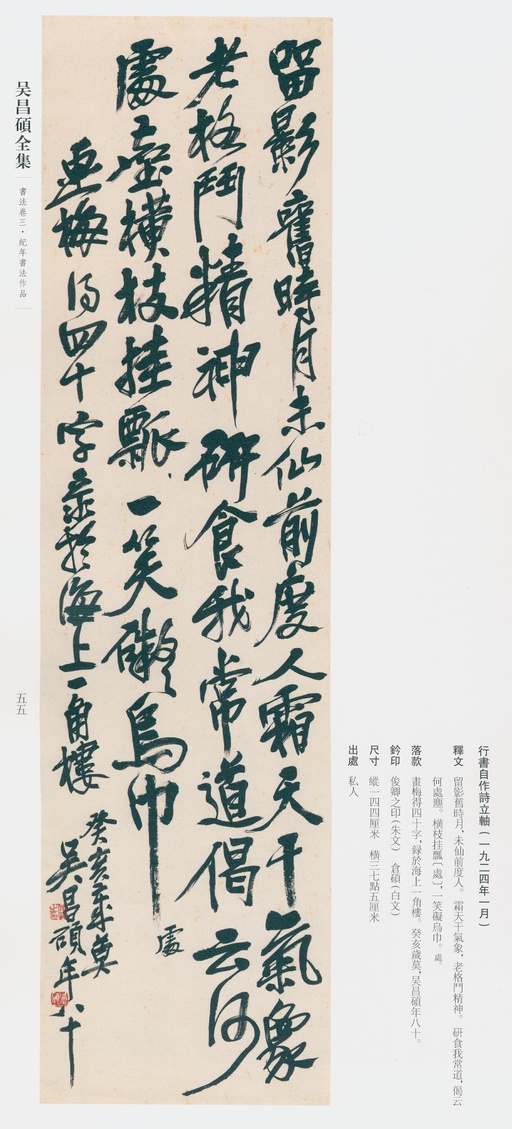 行書自作詩立軸（一九二四年一月）
釋文 留影舊時月，未仙前度人。霜天干氣象，老格鬥精神。研食我常道，偈云
何處塵。橫枝挂瓢〔處〕，一笑礙烏巾。處。
落款 畫梅得四十字，録於海上一角樓。癸亥歲莫，吳昌碩年八十。
鈐印 俊卿之印（朱文） 倉碩（白文）
尺寸 縱一四四厘米 橫三七點五厘米
出處 私人
留影舊時月未仙前度人霜天干氣象
老格鬥精神研食我常道偈云何
處塵橫枝挂瓢一笑礙烏巾 處
畫梅得四十字录於海上一角樓
癸亥歲莫
吳昌碩年八十
吴昌碩全集
書法卷三·紀年書法作品
五五